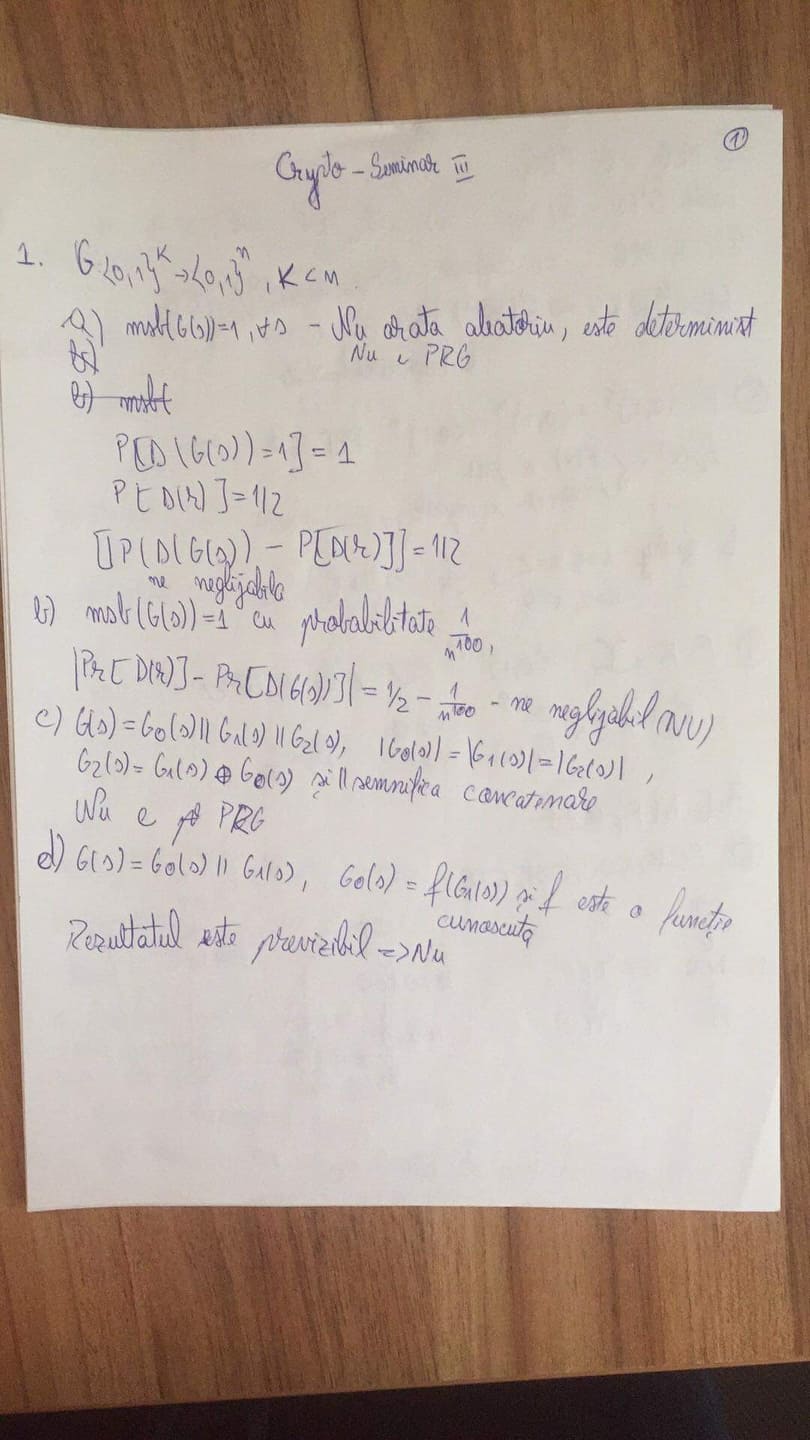 ①
Crypto - Seminar III
1. G{0,1}^K → {0,1}^n, K < n.
a) msb(G(s))=1, ∀s - Nu arata aleatoriu, este determinist
b) Nu e PRG
b) msb(
P[D(G(s))=1] = 1
P[D(r)] = 1/2
[|P(D(G(s)) - P[D(r)]] = 1/2
ne neglijabila
b) msb(G(s))=1 cu probabilitate 1/n^100,
|Pr[D(r)] - Pr[D(G(s))]| = 1/2 - 1/n^100 - ne neglijabil (NU)
c) G(s) = G0(s) || G1(s) || G2(s), |G0(s)| = |G1(s)| = |G2(s)|,
G2(s) = G1(s) ⊕ G0(s) și || semnifica concatenare
Nu e PRG
d) G(s) = G0(s) || G1(s), G0(s) = f(G1(s)) și f este o funcție
cunoscută
Rezultatul este previzibil => Nu